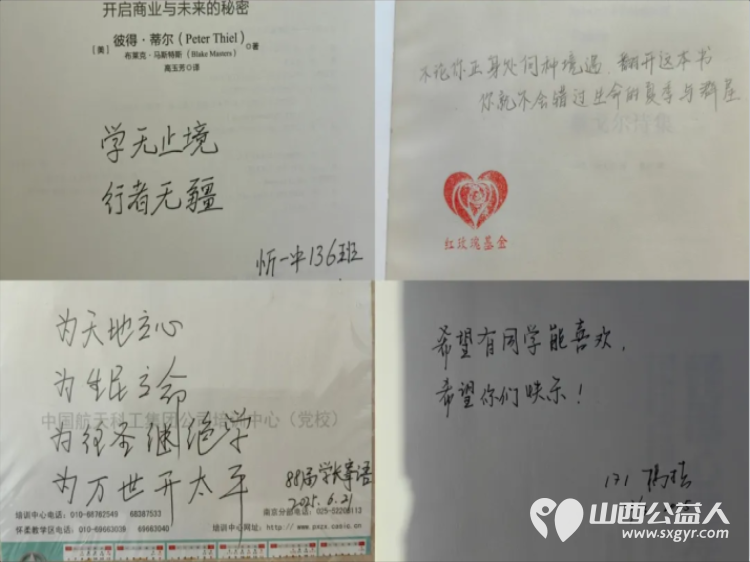 开启商业与未来的秘密
[美] 彼得·蒂尔(Peter Thiel)
布莱克·马斯特斯(Blake Masters) ◎著
高玉芳◎译
学无止境
行者无疆
忻一中136班
不论你正身处何种境遇,翻开这本书
你就不会错过生命的夏季与群星
红玫瑰基金
为天地立心
为生民立命
中国航天科工集团公司培训中心(党校)
为往圣继绝学
为万世开太平
88届学友寄语
2025.6.21
培训中心电话:010-68762549 68387533
南京分部电话:025-52208113
怀柔教学区电话:010-69663038 69663040
培训中心网址:http://www.pxzx.casic.cn
希望有同学能喜欢,
希望你们快乐!
171
山西公益人
www.sxgyr.com